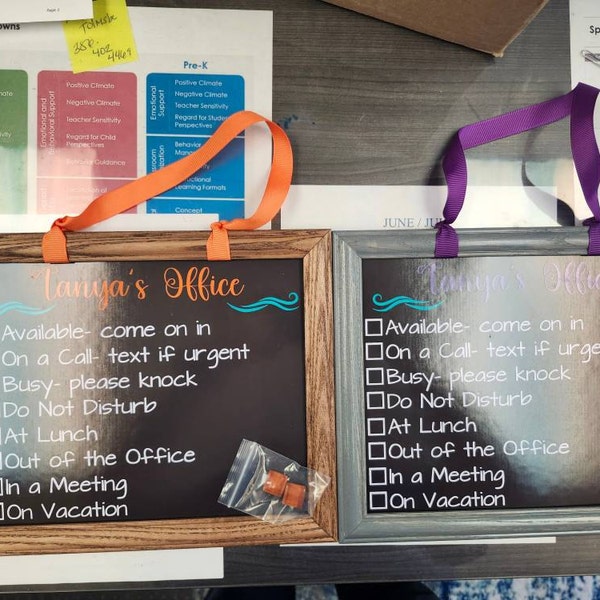 owns
Dept. 2
Pre-K
Sp
386.
402
4469
Emotional and
Behavioral Support
Positive Climate
Negative Climate
Teacher Sensitivity
Regard for Child
Perspectives
Behavior Guidance
Emotional
Support
Positive Climate
Negative Climate
Teacher Sensitivity
Regard for Student
Perspectives
Behavior
Learning Formats
Concept
JUNE / JU
Tanya's Office
Available- come on in
On a Call- text if urgent
Busy- please knock
Do Not Disturb
At Lunch
Out of the Office
In a Meeting
On Vacation
Tanya's Offic
Available- come on in
On a Call- text if urge
Busy- please knock
Do Not Disturb
At Lunch
Out of the Office
In a Meeting
On Vacation